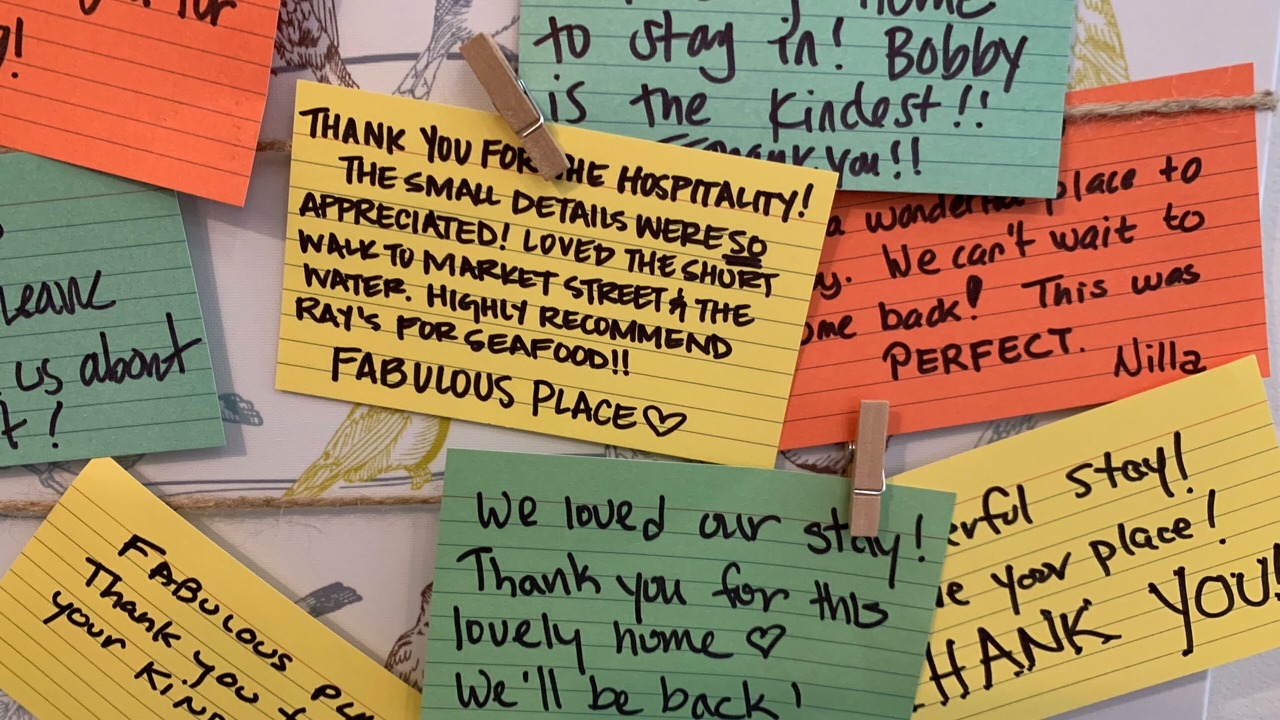 for
!
to stay in! Bobby
is the kindest!!
Thank you!!
THANK YOU FOR THE HOSPITALITY!
THE SMALL DETAILS WERE SO
APPRECIATED! LOVED THE SHORT
WALK TO MARKET STREET & THE
WATER. HIGHLY RECOMMEND
RAY'S FOR SEAFOOD!!
FABULOUS PLACE♡
a wonderful place to
We can't wait to
back! This was
PERFECT.
Nilla
leave
us about
!
We loved our stay!
Thank you for this
lovely home ♡
We'll be back!
stay!
your place!
THANK YOU!
FABULOUS
Thank you
your